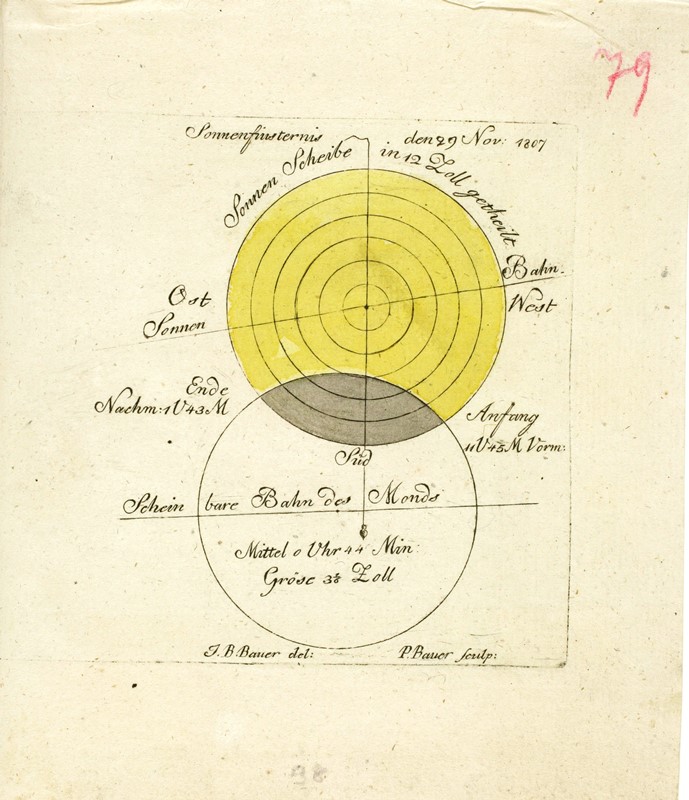 79
Sonnenfinsternis den 29 Nov: 1807
Sonnen Scheibe in 12 Zoll getheilt
Bahn.
Ost West
Sonnen
Ende
Nachm: 1 U 43 M
Anfang
11 U 45 M Vorm:
Süd
Schein bare Bahn des Monds
Mittel 0 Uhr 44 Min:
Gröse Zoll
J. B. Bauer del: P. Bauer sculp: